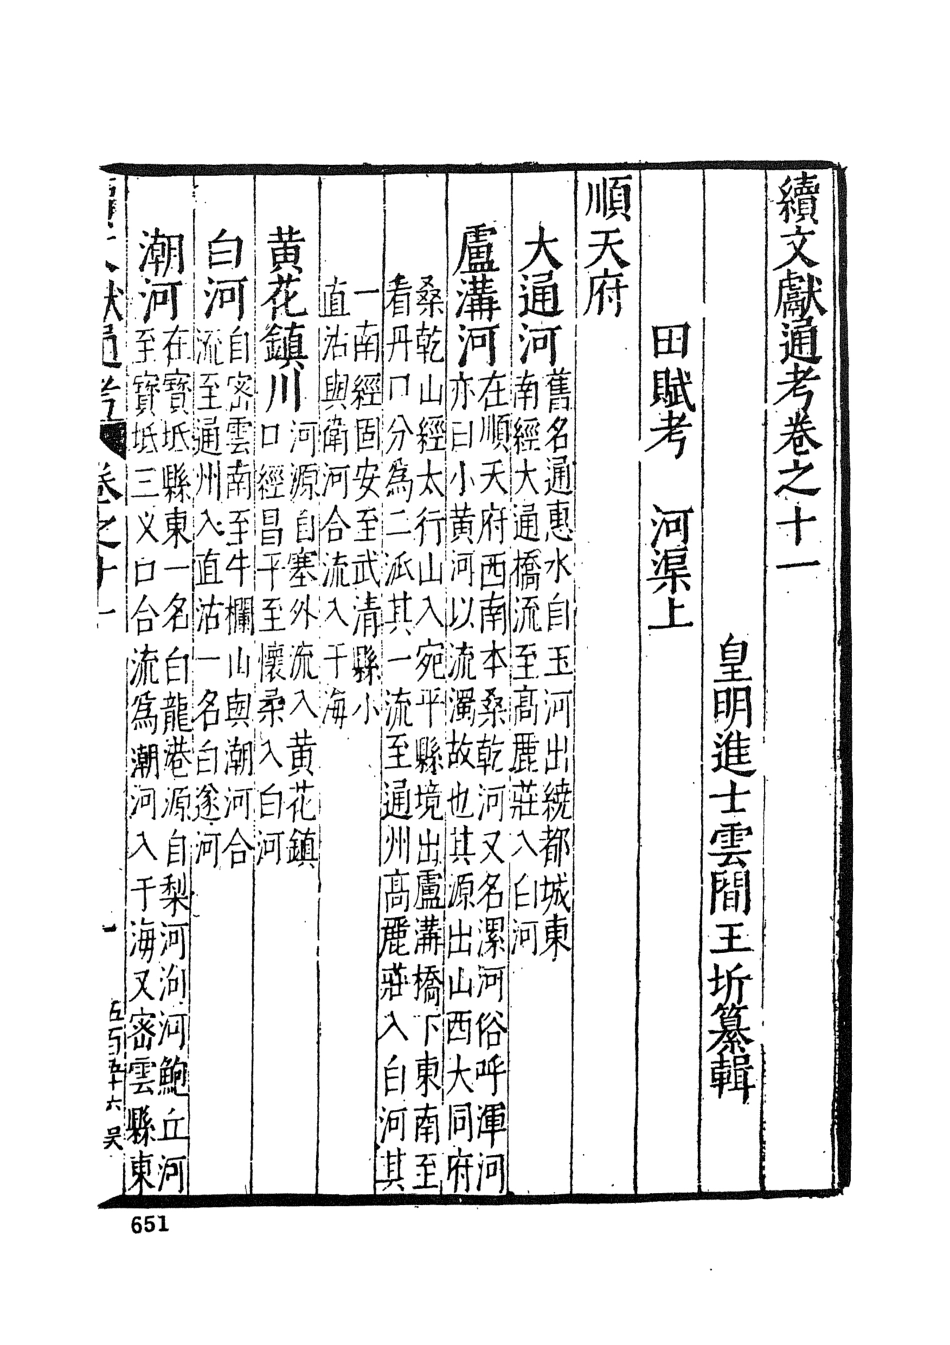 續文獻通考卷之十一
皇明進士雲間王圻纂輯
田賦考　河渠上
順天府
大通河
舊名通惠水自玉河出繞都城東
南經大通橋流至髙麗莊入白河
盧溝河
在順天府西南本桑乾河又名漯河俗呼渾河
亦曰小黄河以流濁故也其源出山西大同府
桑乾山經太行山入宛平縣境出盧溝橋下東南至
看丹口分為二派其一流至通州髙麗莊入白河其
一南經固安至武清縣小
直沽與衛河合流入于海
黄花鎮川
河源自塞外流入黄花鎮
口經昌平至懷柔入白河
白河
自密雲南至牛欄山與朝河合
流至通州入直沽一名白遂河
潮河
在寳坻縣東一名白龍港源自梨河泃河鮑丘河
至寳坻三义口合流為潮河入于海又密雲縣東
續文獻通考
卷之十一
一
五百五十六 吴
651